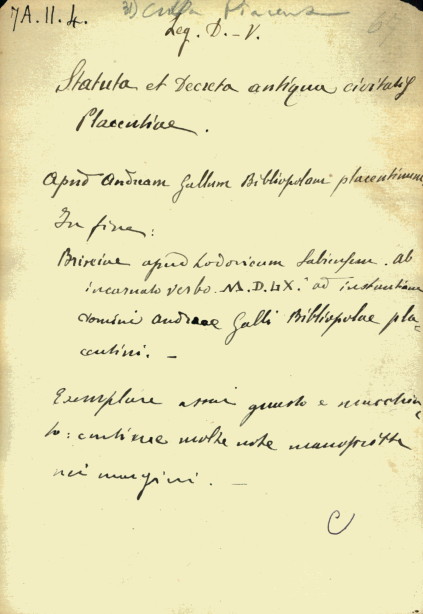 7A.II.4.
Leg. D.-V.
Statuta et Decreta antiqua civitatis
Placentiae.
Apud Andream Gallum Bibliopolam placentinum
In fine:
Brixiae apud Lodovicum Sabiensem. ab
incarnato verbo. M.D.LX. ad instantiam
domini Andreae Galli Bibliopolae pla-
centini. -
Exemplare assai guasto e macchia-
to: contiene molte note manoscritte
nei margini. -
C